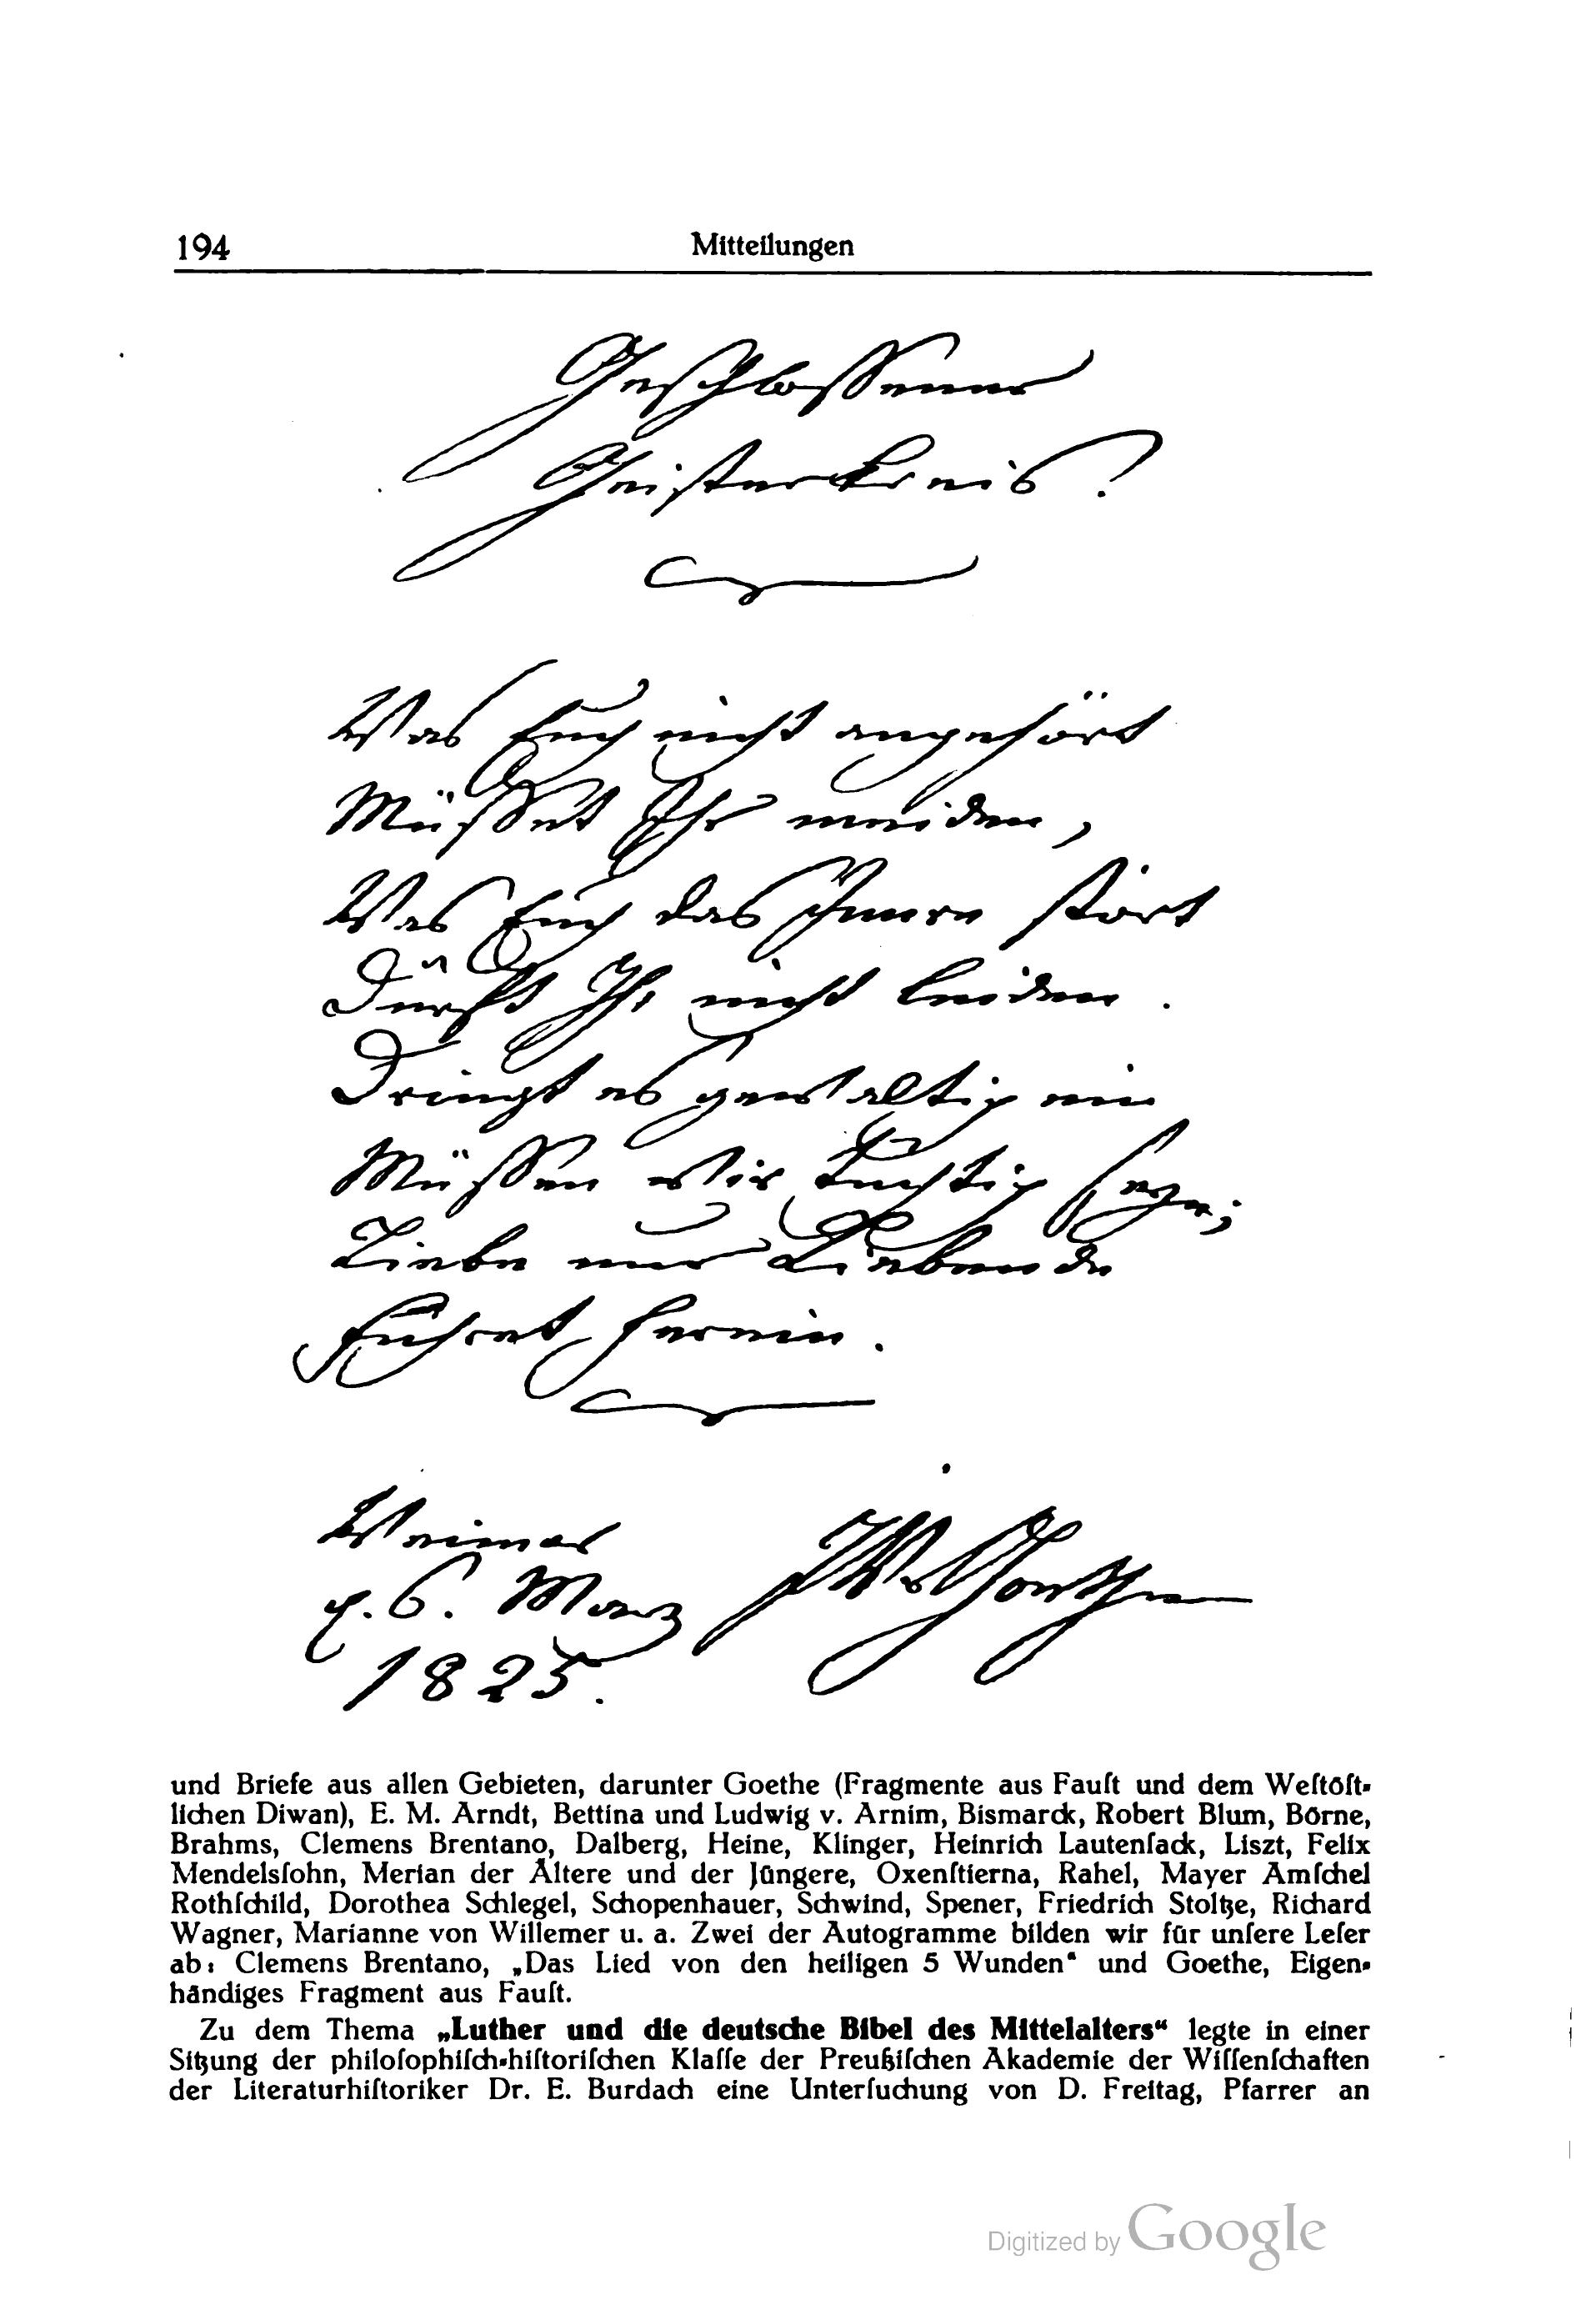 194 Mitteilungen
Geschlossener
Geisterkreis!
Was Euch nicht angehört
Müsset Ihr meiden,
Was Euch das Innere stört
Dürft Ihr nicht leiden.
Dringt es gewaltig ein
Müssen wir tüchtig seyn;
Liebe nur Liebende
Führet herein.
Weimar
d. 6. März
1825.
JWvGoethe
und Briefe aus allen Gebieten, darunter Goethe (Fragmente aus Fauſt und dem Weſtöſt-
lichen Diwan), E. M. Arndt, Bettina und Ludwig v. Arnim, Bismarck, Robert Blum, Börne,
Brahms, Clemens Brentano, Dalberg, Heine, Klinger, Heinrich Lautenſack, Liszt, Felix
Mendelsſohn, Merian der Ältere und der Jüngere, Oxenſtierna, Rahel, Mayer Amſchel
Rothſchild, Dorothea Schlegel, Schopenhauer, Schwind, Spener, Friedrich Stoltze, Richard
Wagner, Marianne von Willemer u. a. Zwei der Autogramme bilden wir für unſere Leſer
ab: Clemens Brentano, „Das Lied von den heiligen 5 Wunden“ und Goethe, Eigen-
händiges Fragment aus Fauſt.
Zu dem Thema „Luther und die deutsche Bibel des Mittelalters“ legte in einer
Sitzung der philoſophiſch-hiſtoriſchen Klaſſe der Preußiſchen Akademie der Wiſſenſchaften
der Literaturhiſtoriker Dr. E. Burdach eine Unterſuchung von D. Freitag, Pfarrer an
Digitized by Google